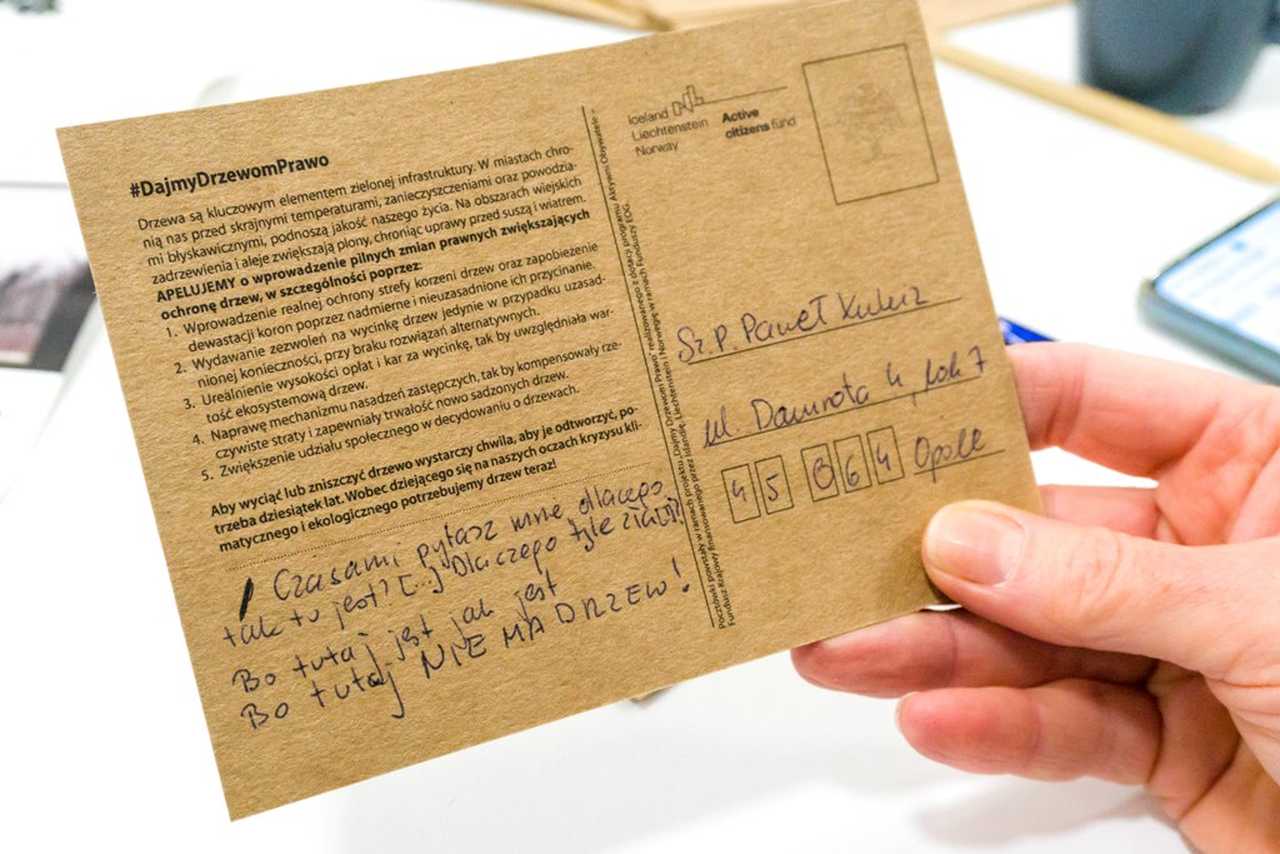 #DajmyDrzewomPrawo
Drzewa są kluczowym elementem zielonej infrastruktury. W miastach chro-
nią nas przed skrajnymi temperaturami, zanieczyszczeniami oraz powodzia-
mi błyskawicznymi, podnoszą jakość naszego życia. Na obszarach wiejskich
zadrzewienia i aleje zwiększają plony, chroniąc uprawy przed suszą i wiatrem.
APELUJEMY o wprowadzenie pilnych zmian prawnych zwiększających
ochronę drzew, w szczególności poprzez:
1. Wprowadzenie realnej ochrony strefy korzeni drzew oraz zapobieżenie
dewastacji koron poprzez nadmierne i nieuzasadnione ich przycinanie.
2. Wydawanie zezwoleń na wycinkę drzew jedynie w przypadku uzasad-
nionej konieczności, przy braku rozwiązań alternatywnych.
3. Urealnienie wysokości opłat i kar za wycinkę, tak by uwzględniała war-
tość ekosystemową drzew.
4. Naprawę mechanizmu nasadzeń zastępczych, tak by kompensowały rze-
czywiste straty i zapewniały trwałość nowo sadzonych drzew.
5. Zwiększenie udziału społecznego w decydowaniu o drzewach.
Aby wyciąć lub zniszczyć drzewo wystarczy chwila, aby je odtworzyć, po-
trzeba dziesiątek lat. Wobec dziejącego się na naszych oczach kryzysu kli-
matycznego i ekologicznego potrzebujemy drzew teraz!
Czasami pytasz mnie dlacego
tak tu jest? [...] Dlaczego tyle
Bo tutaj jest jak jest
Bo tutaj NIE MA DRZEW!
Pocztówki powstały w ramach projektu Dajmy Drzewom Prawo, realizowanego z dotacji programu Aktywni Obywatele –
Fundusz Krajowy finansowanego przez Islandię, Liechtenstein i Norwegię w ramach Funduszy EOG.
Iceland
Liechtenstein
Norway
Active
citizens fund
Sz. P. Paweł
ul. Damrota 4, pok 7
45 064 Opole